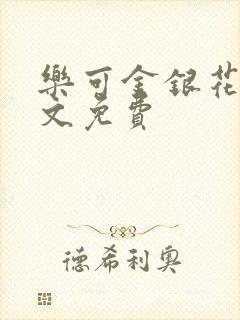 樂可金銀花
文免費
德希利奧